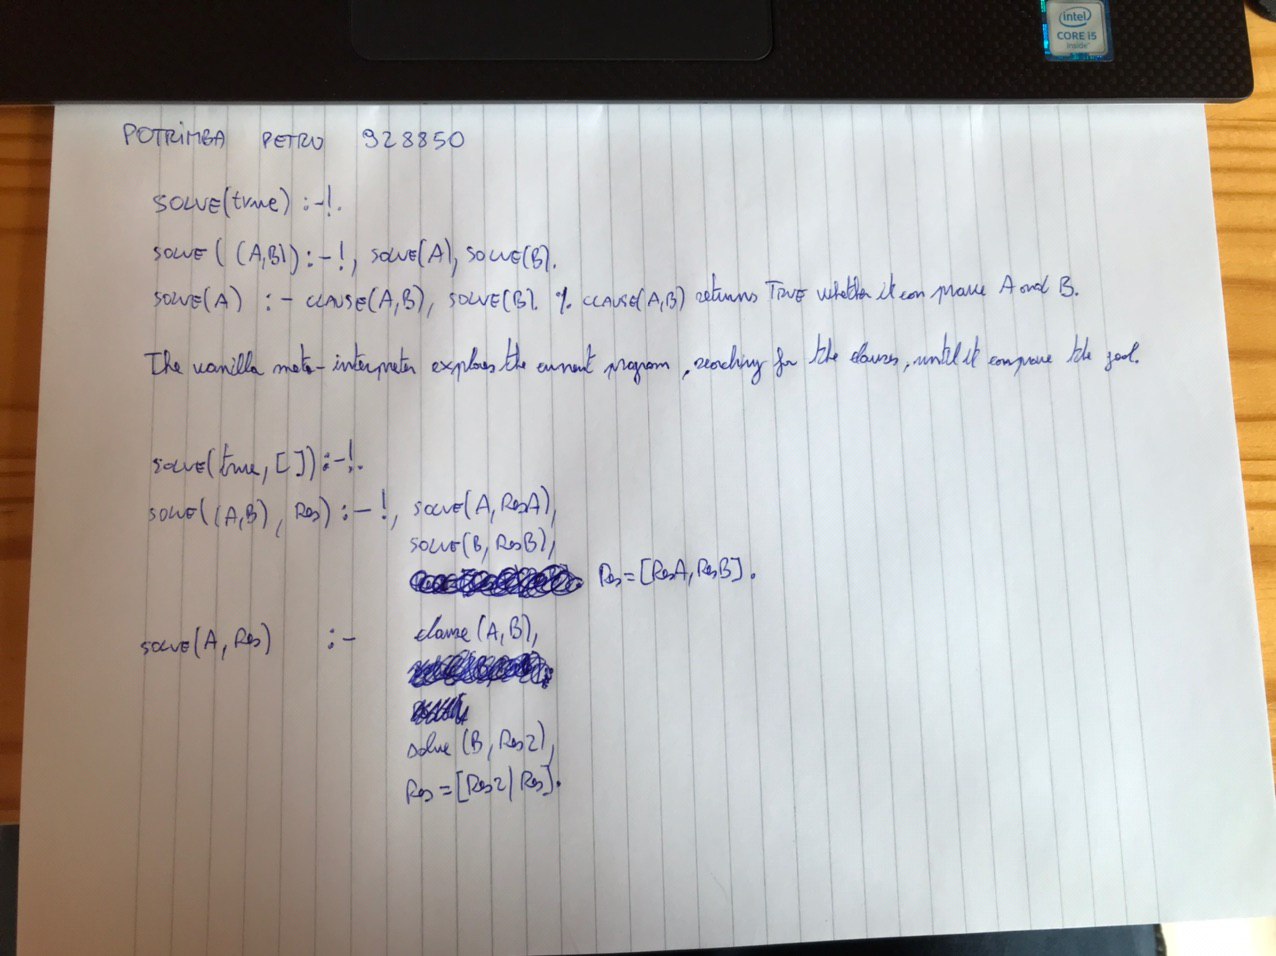 intel
CORE i5
inside
POTRIMBA PETRU 928850
SOLVE(true) :-!.
SOLVE((A,B)) :-!, SOLVE(A), SOLVE(B).
SOLVE(A) :- CLAUSE(A,B), SOLVE(B). % CLAUSE(A,B) returns TRUE whether it can prove A and B.
The vanilla meta-interpreter explores the current program, searching for the clauses, until it can prove the goal.
SOLVE(true,[]):-!.
SOLVE((A,B), Res) :-!, SOLVE(A,ResA),
SOLVE(B,ResB),
Res=[ResA,ResB].
SOLVE(A,Res) :- clause(A,B),
solve(B,Res2),
Res=[Res2|Res].